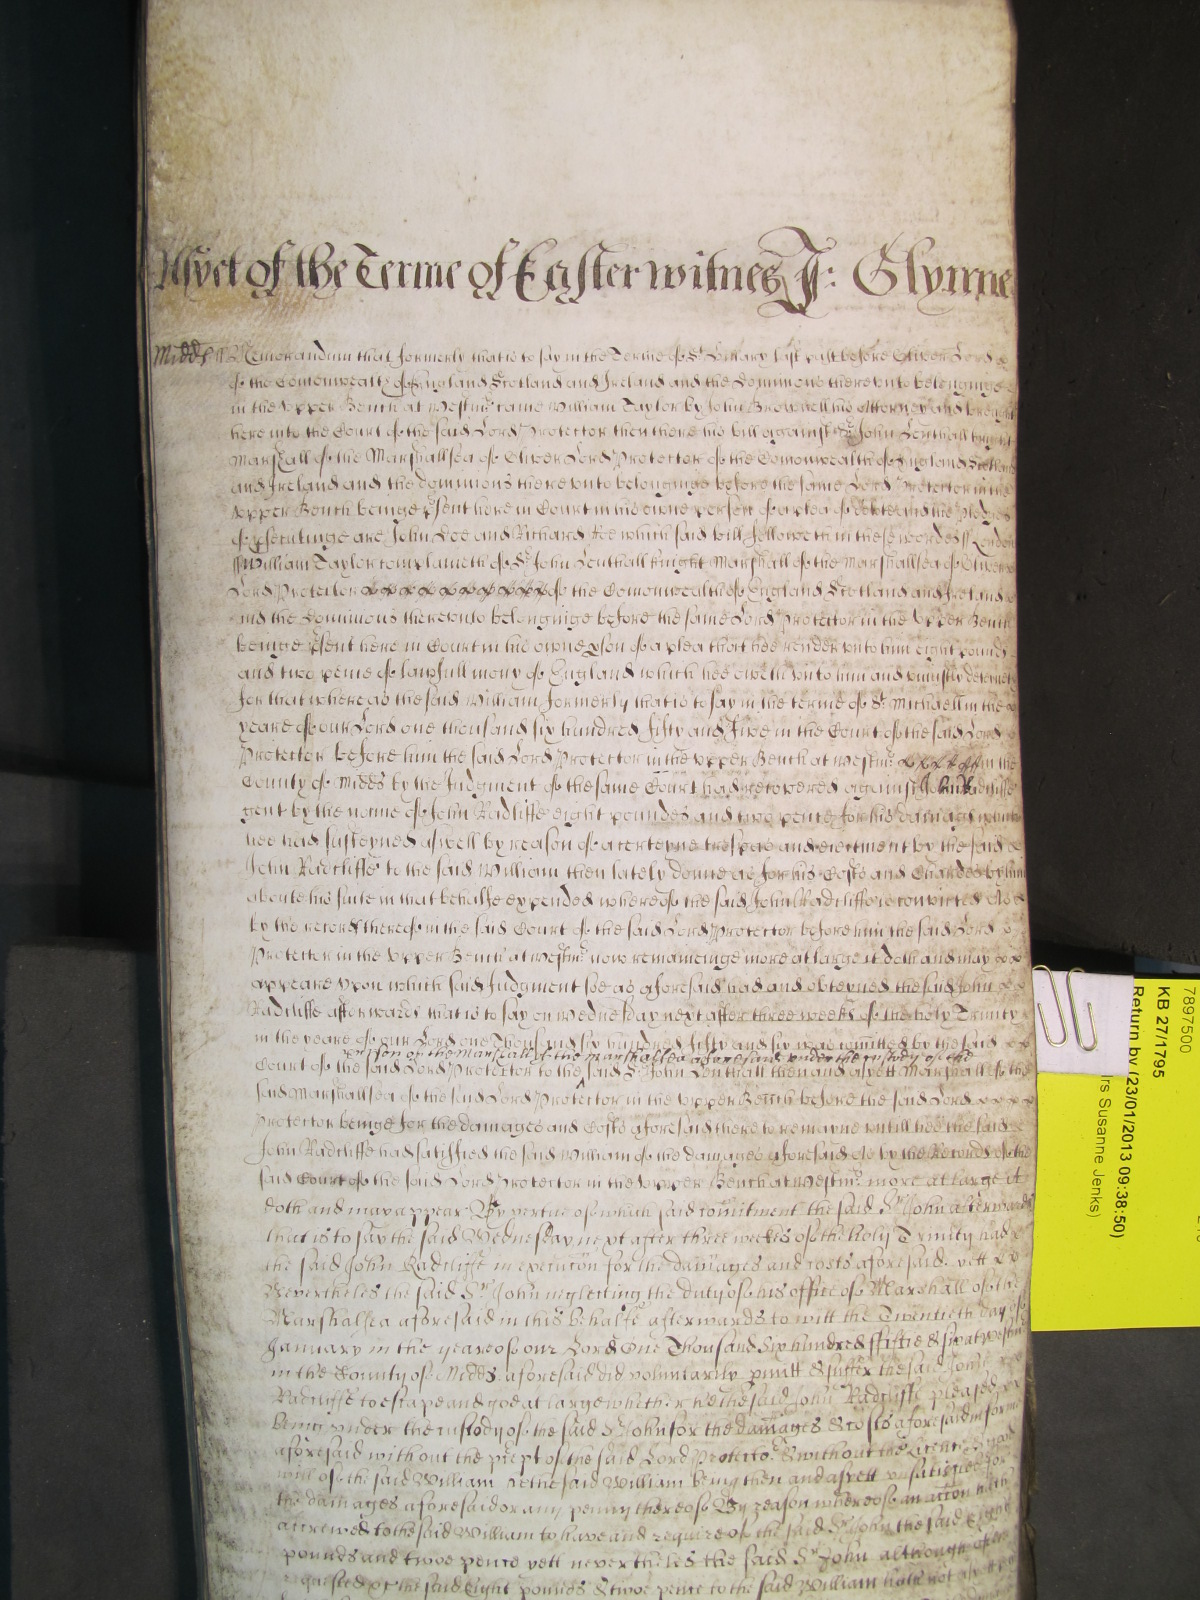 As yet of the Terme of Easter witnes J: Glynne
Midds Memorandum that formerly that is to say in the Terme of St Hillary last past before Oliver Lord
of the Comonwealth of England Scotland and Ireland and the Dominions there unto belonginge
in the Upper Bench at Westmr came William Taylor by John Browell his Attorney and brought
here into the Court of the said Lord Protector then there his bill against Sr John Lenthall knight
Marshall of the Marshallsea of Oliver Lord Protector of the Comonwealth of England Scotland
and Ireland and the dominions there unto belonginge before the same Lord Protector in the
Upper Bench beinge psent here in Court in his owne person of a plea of debt and the pledges
of psecutinge are John Doe and Richard Roe which said bill followeth in these wordes ss London
ss William Taylor complaineth of Sr John Lenthall knight Marshall of the Marshallsea of Oliver
Lord Protector of the Comonwealth of England Scotland and Ireland
and the Dominions thereunto belonginge before the same Lord Protector in the Upper Bench
beinge psent here in Court in his owne pson of a plea that hee render unto him eight pounds
and two pence of lawfull mony of England which hee oweth unto him and uniustly deteyneth
for that whereas the said William formerly that is to say in the terme of St Michaell in the
yeare of our Lord one thousand six hundred fifty and five in the Court of the said Lord
Protector before him the said Lord Protector in the Upper Bench at Westmr in the
County of Midds by the Judgment of the same Court had recovered against John Radcliffe
gent by the name of John Radcliffe eight poundes and two pence for his damages which
hee had susteyned aswell by reason of a certeyne trespas and eiectment by the said
John Radcliffe to the said William then lately donne as for his Costs and Charges by him
about his suite in that behalfe expended whereof the said John Radcliffe is convicted As
by the record thereof in the said Court of the said Lord Protector before him the said Lord
Protector in the Upper Bench at Westmr now remaineinge more at large it doth and may
appeare Upon which said Judgment soe as aforesaid had and obteyned the said John
Radcliffe afterwards that is to say on Wednesday next after three weeks of the holy Trinity
in the yeare of our Lord one Thousand six hundred fifty and six was comitted by the said
prison of the Marshall of the Marshallsea aforesaid under the custody of the
Court of the said Lord Protector to the said Sr John Lenthall then and as yett Marshall of the
said Marshallsea of the said Lord Protector in the Upper Bench before the said Lord
Protector beinge for the damages and Costs aforesaid there to remayne untill hee the said
John Radcliffe had satisfied the said William of the damages aforesaid As by the Records of the
said Court of the said Lord Protector in the Upper Bench at Westmr more at large it
doth and may appear By vertue of which said comitment the said Sr John afterwards
that is to say the said Wednesday next after three weekes of the holy Trinity had
the said John Radcliffe in execucon for the damages and costs aforesaid yett
Nevertheles the said Sr John neglecting the duty of his office of Marshall of the
Marshalsea aforesaid in this behalfe afterwards to witt the Twentieth day of
January in the yeare of our Lord One Thousand Six hundred fiftie & six at Westmr
in the County of Midds aforesaid did voluntarily pmitt & suffer the said John
Radcliffe to escape and goe at large whither he the said John Radcliffe pleased
being under the custody of the said Sr John for the damages & costs aforesaid in forme
aforesaid without the pcept of the said Lord Protector & without the Licence
will of the said William he the said William being then and as yett unsatisfied for
the damages aforesaid or any penny thereof By reason whereof an accon hath
accrewed to the said William to have and require of the said Sr John the said Eight
pounds and twoe pence yett nevertheles the said Sr John although often
requested of the said Eight pounds & twoe pence to the said William hath not as yett
7897500
KB 27/1795
Return by (23/01/2013 09:38:50)
rs Susanne Jenks)